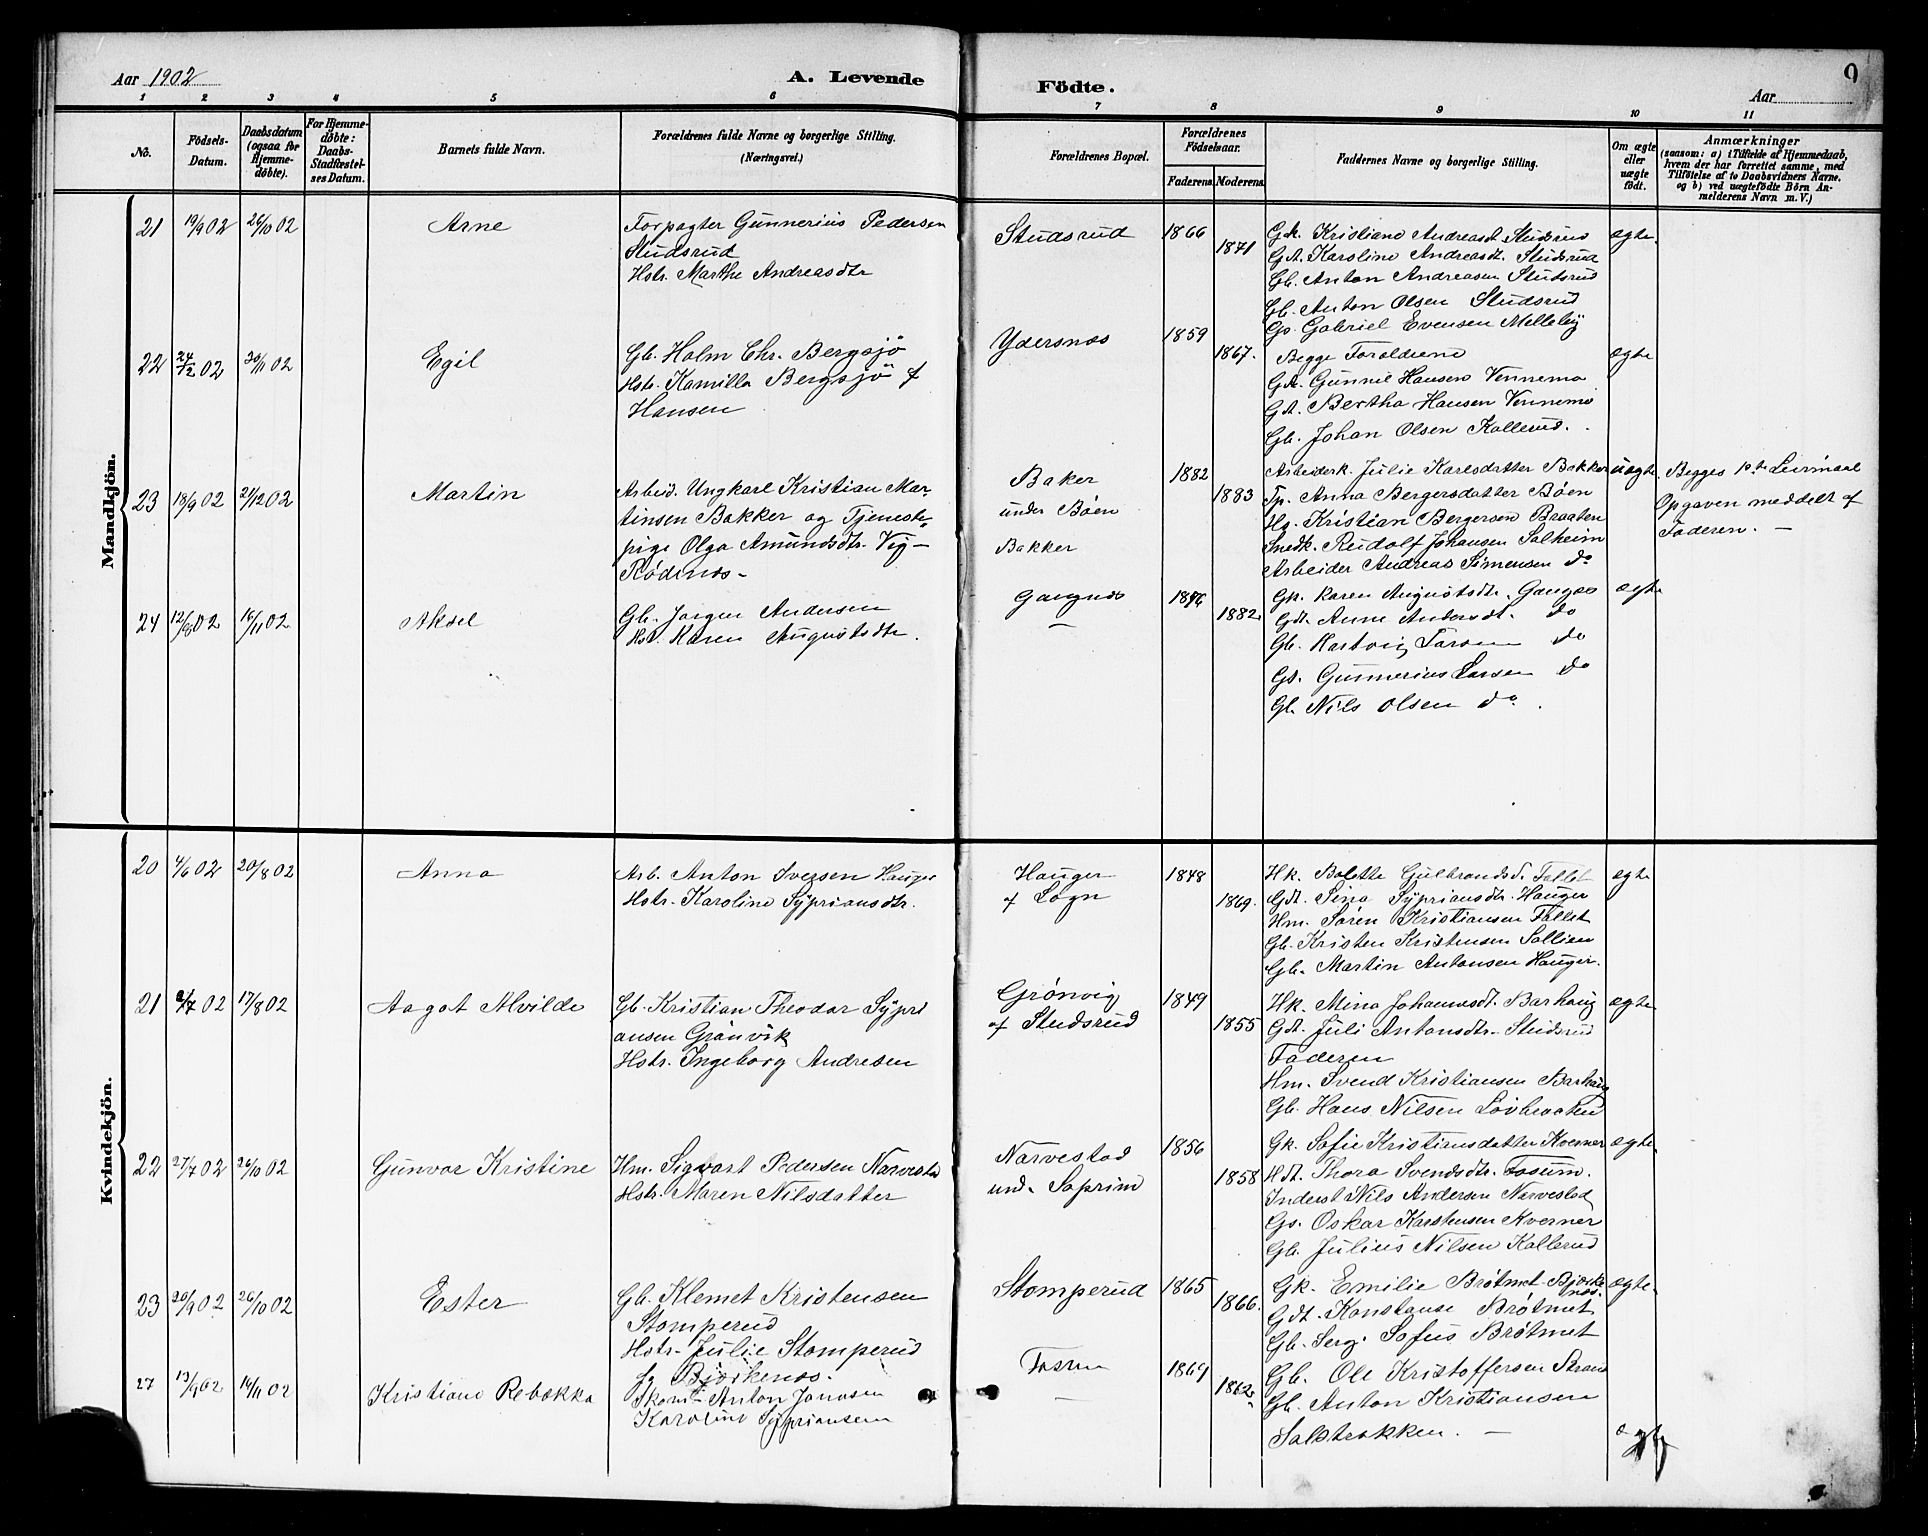 Aar 1902
A. Levende
Födte.
9
Aar
1 2 3 4 5 6 7 8 9 10 11
No.
Födsels-
Datum.
Daabsdatum
(ogsaa for
Hjemme-
döbte).
For Hjemme-
döbte:
Daabs-
Stadfæstel-
ses Datum.
Barnets fulde Navn.
Forældrenes fulde Navne og borgerlige Stilling.
(Næringsvei.)
Forældrenes Bopæl.
Forældrenes
Födselsaar.
Faderens. Moderens.
Faddernes Navne og borgerlige Stilling.
Om ægte
eller
uægte
födt.
Anmærkninger
(saasom: a) i Tilfælde af Hjemmedaab,
hvem der har forrettet samme, med
Tilföielse af to Daabsvidners Navne.
og b) ved uægtefödte Börn An-
melderens Navn m. V.)
Mandkjön.
21 19/9 02 26/10 02 Arne
Forpagter Gunnerius Pedersen
Studsrud
Hstr. Marthe Andreasdtr
Studsrud 1866 1871
Gk. Kristiane Andreasdt. Studsrud
Gdt. Karoline Andreasdt. Studsrud
Gb. Anton Andreasen Studsrud
Gb. Anton Olsen Studsrud
Gs. Gabriel Evensen Melleby
ægte.
22 02 30/11 02 Egil
Gb. Holm Chr. Bergsjö
Hstr. Kamilla Bergsjö f
Hansen
Ydersnes 1859 1867.
Begge Forældrene
Gdt. Gunnil Hansen Vennemo
Gdt. Bertha Hansen Vennemo
Gb. Johan Olsen Kallerud.
ægte
23 18/9 02 21/12 02 Martin
Arbeid. Ungkarl Kristian Mar-
tinsen Bakker og Tjeneste-
pige Olga Amundsdtr. Vig-
Rödenes-
Baker
under Bøen
Bakker
1882 1883
Arbeiderk. Julie Karlsdatter Bakker
Tp. Anna Bergersdatter Bøen
Hs. Kristian Bergersen Braaten
Snedk. Rudolf Johansen Solheim
Arbeider Andreas Simensen do
uægte.
Begges 1ste Leirmaal
Opgaven meddelt af
Faderen. -
24 12/8 02 16/11 02 Aksel
Gb. Jørgen Andersen
Hst. Karen Augustsdtr.
Gangnæs
1876 1882
Gk. Karen Augustsdt. Gangnæs
Gdt. Anne Andersdt. do
Gb. Hartvig Larsen do
Gs. Gunnerius Larsen do
Gb. Nils Olsen do.
ægte
Kvindekjön.
20 4/6 02 20/8 02 Anna
Arb. Anton Iversen Hauger
Hstr. Karoline Sypriansdtr.
Hauger
af Sogn
1848 1869.
Hk. Bolette Gulbrandsdt. Fallet
Gdt. Sina Sypriansdtr. Hauger
Hm. Søren Kristiansen Fallet
Gb. Kristen Kristensen Sollien
Gb. Martin Antonsen Hauger.
ægte
21 2/7 02 17/8 02 Aagot Alvilde
Gb. Kristian Theodor Sypri
ansen Grönvik
Hstr. Ingeborg Andresen
Grönvig
af Studsrud
1849 1855
Hk. Mina Johannesdt. Barhaug
Gdt. Juli Antonsdtr. Studsrud
Faderen
Hm. Svend Kristiansen Barhaug
Gb. Hans Nilsen Løvbraaten
ægte
22 27/7 02 26/10 02 Gunvor Kristine
Hm. Sigvart Pedersen Narvestad
Hstr. Maren Nilsdatter
Narvestad
und. Soprim
1856 1858
Gk. Sofie Kristiansdatter Kverner
Hdt. Thora Svendsdtr. Fosum.
Inderst Nils Andersen Narvestad
Gs. Oskar Karstensen Kverner
Gb. Julius Nilsen Kallerud
ægte.
23 20/9 02 26/10 02 Ester
Gb. Klemet Kristensen
Stomperud
Hstr. Julie Stomperud
f. Bjørkenæs.
Stomperud 1865 1866.
Gk. Emilie Brøtmet Bjørke
næs.
Gdt. Konstanse Brøtmet
Gb. Serg. Sofus Brøtmet
ægte.
27 13/9 02 16/11 02 Kristiane Rebekka
Skom. Anton Jonasen
Karoline Sypriansen
Fosum 1869 1862
Gb. Ole Kristoffersen Strand
Gb. Anton Kristiansen
Salstrøkken. -
ægte